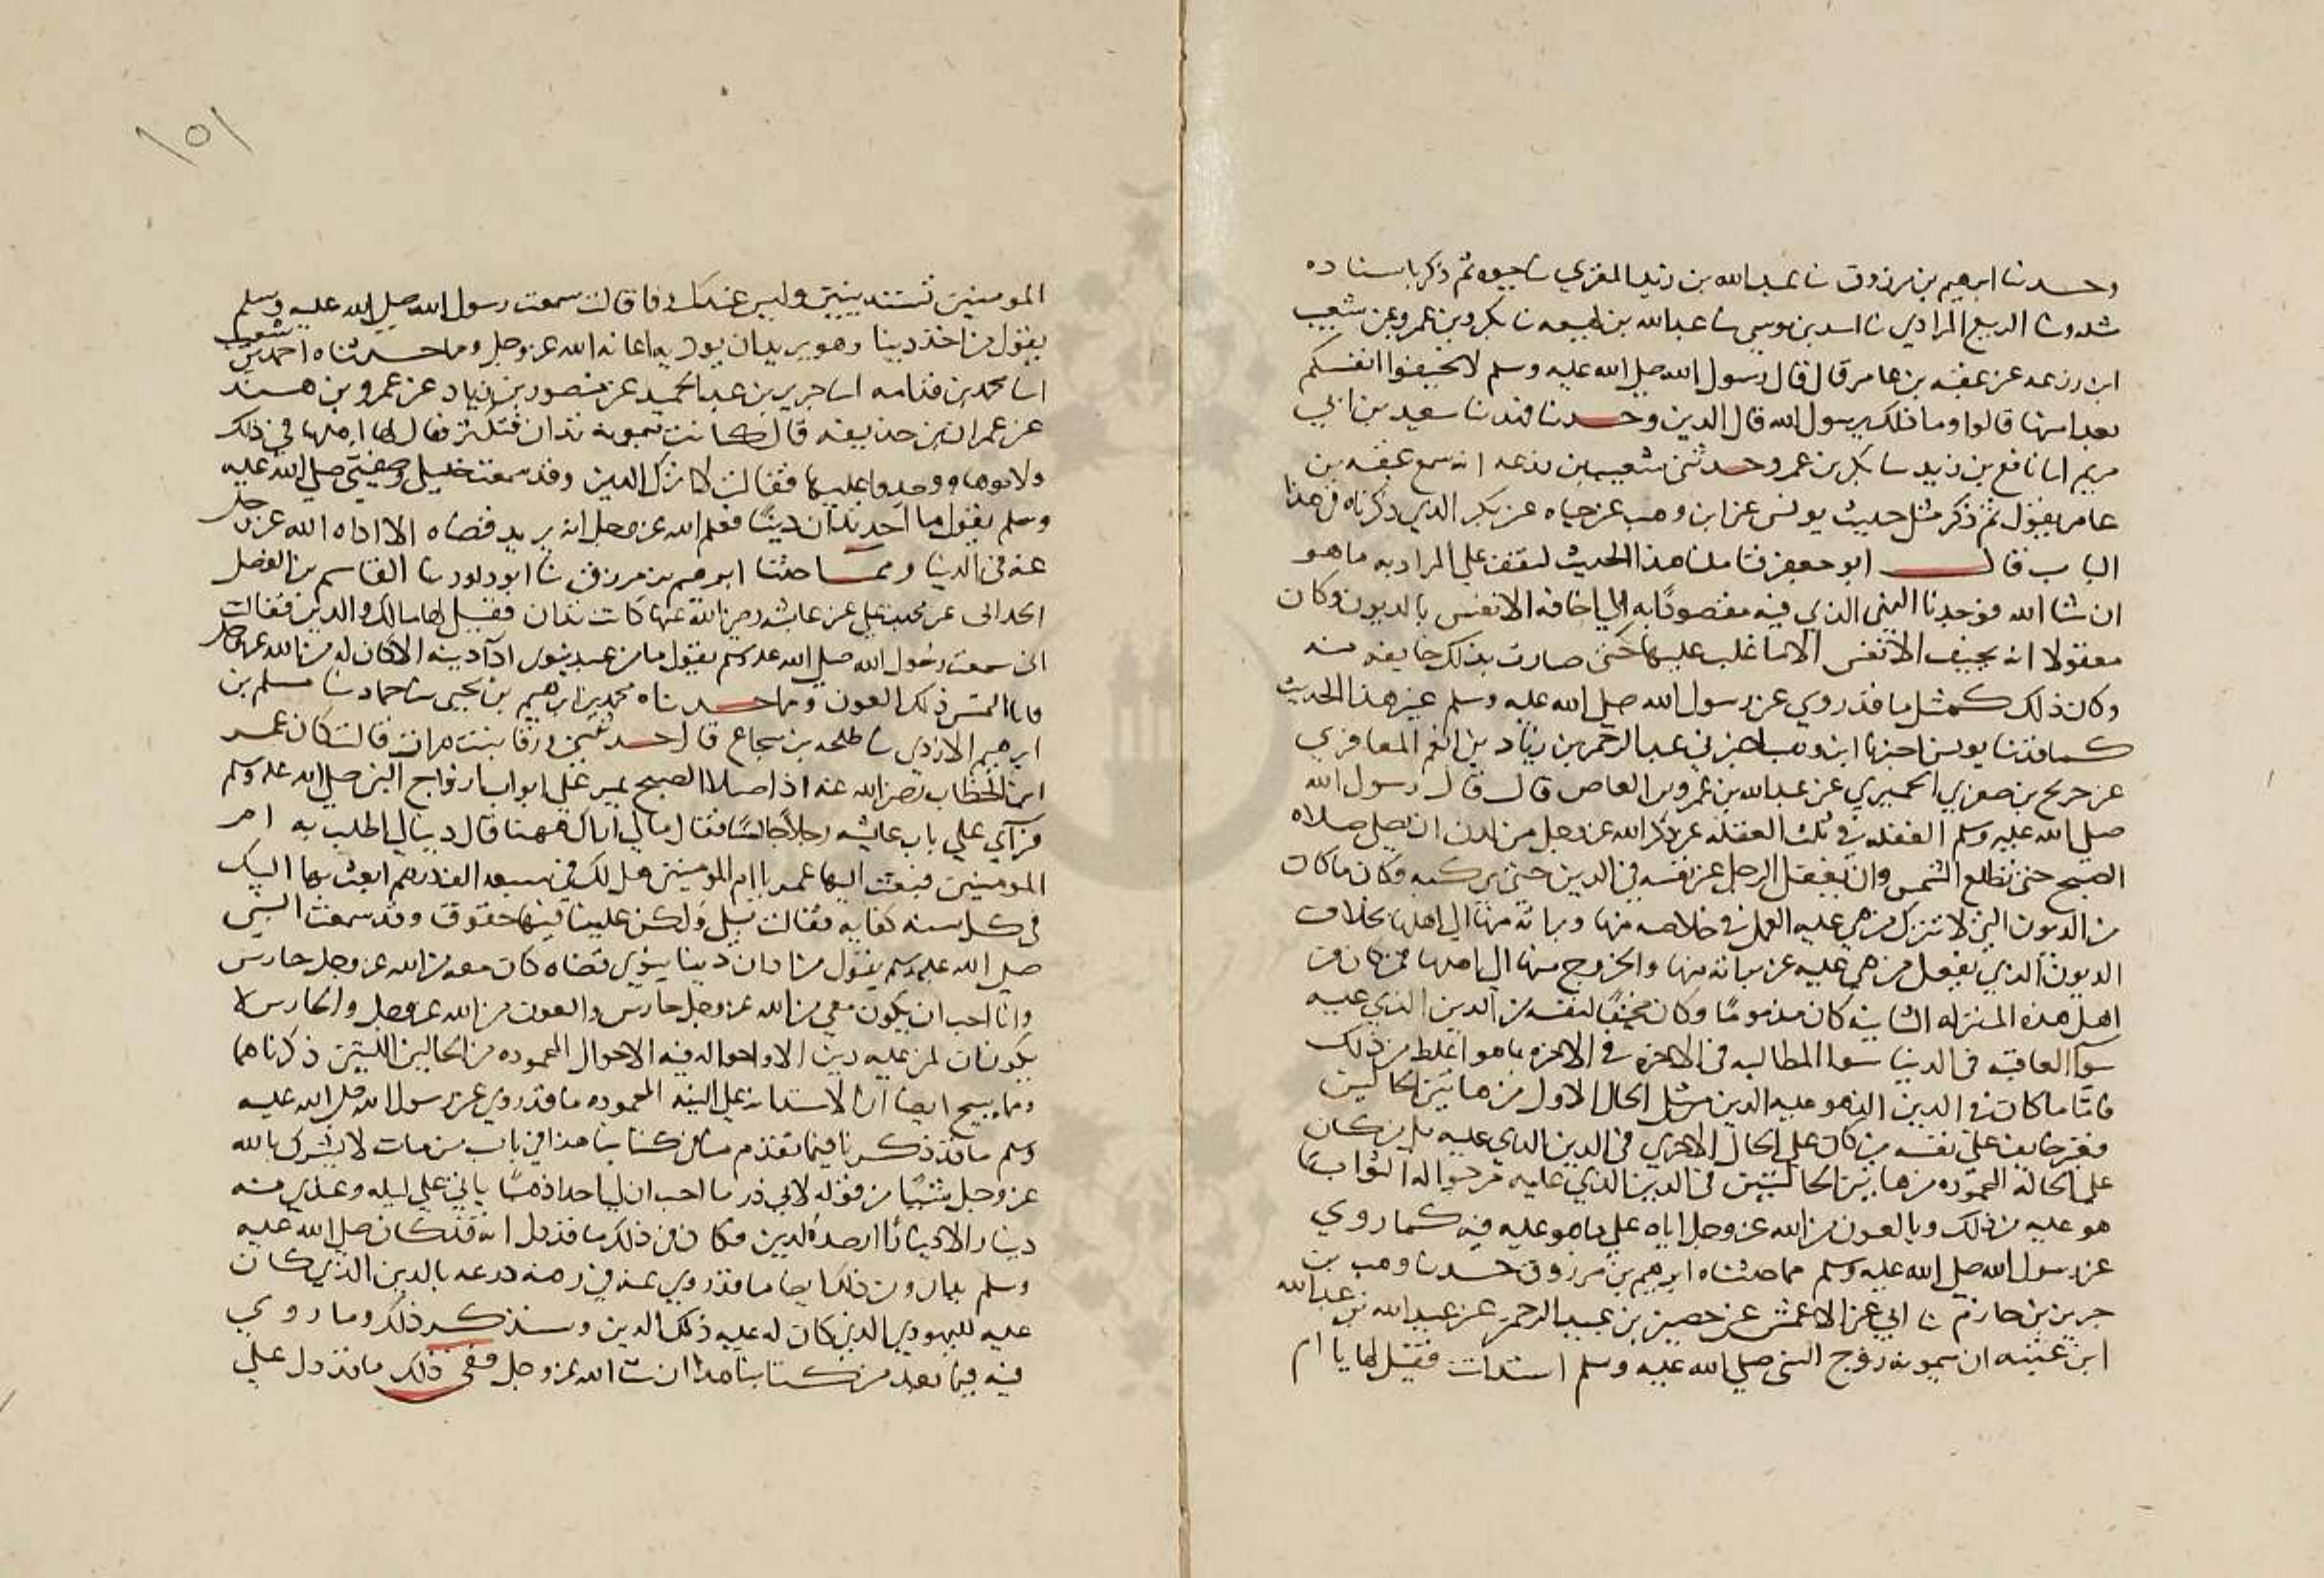 وحدثنا ابرهيم بن مرزوق نا عبدالله بن زيد المقري نا حيوه ثم ذكر باسناده
مثله ونا الربيع المرادي نا اسد بن موسي نا عبدالله بن لهيعه نا بكر بن عمرو عن شعيب
ابن زرعه عن عقبه بن عامر قال قال رسول الله صلي الله عليه وسلم لا تخيفوا انفسكم
بعد امنها قالوا وما ذلك يرسول الله قال الدين وحدثنا فهد نا سعيد بن ابي
مريم انا نافع بن زيد نا بكر بن عمر وحدثني شعيب بن زرعه انه سمع عقبه بن
عامر يقول ثم ذكر مثل حديث يونس عن ابن وهب عن حياه عن بكر الذي ذكرناه في هذا
الباب قال ابو جعفر فتاملنا هذا الحديث لنقف علي المراد به ما هو
ان شا الله فوجدنا النهي الذي فيه مقصودًا به الي اخافه الانفس بالديون وكان
معقولا انه لم يخيف الانفس الا ما غلب عليها حتي صارت بذلك خايفه منه
وكان ذلك كمثل ما قد روي عن رسول الله صلي الله عليه وسلم في غير هذا الحديث
كما حدثنا يونس اخبرنا ابن وهب اخبرني عبد الرحمن بن زياد بن انعم المعافري
عن حديج بن صومي الحميري عن عبدالله بن عمرو بن العاص قال قال رسول الله
صلي الله عليه وسلم الغفله في ثلث الغفله عن ذكر الله عز وجل من لدن ان يصلي صلاه
الصبح حتي تطلع الشمس وان يغفل الرجل عن نفسه في الدين حتي يركبه فكان ما كان
من الديون التي لا تترك من هي عليه العمل في خلاصه منها وبراته منها الي اهلها بخلاف
الديون الذي يغفل من هي عليه عن براته منها والخروج منها الي اهلها فمن كان من
اهل هذه المنزله الثانيه كان مذمومًا وكان مخيفًا لنفسه من الدين الذي عليه
سوا العاقبه في الدنيا سوا المطالبه في الاخره في الاخره ما هو اغلظ من ذلك
فاما ما كان من الدين الذي هو عليه الدين مثل الحال الاول من هاتين الحالين
فغير خايف علي نفسه من كان علي الحال الاخري في الدين الذي عليه بل من كان
علي الحاله المحموده من هاتين الحالتين في الدين الذي عليه مرجوا له الثواب بما
هو عليه من ذلك وبالعون من الله عز وجل اياه علي ما هو عليه فيه كما روي
عن رسول الله صلي الله عليه وسلم مما حدثناه ابرهيم بن مرزوق حدثنا وهب بن
جرير بن حازم نا ابي عن الاعمش عن حصين بن عبد الرحمن عن عبيد الله بن عبدالله
ابن عتبه ان ميمونه زوج النبي صلي الله عليه وسلم استدانت فقيل لها يا ام
١٥١
المومنين تستدينين وليس عندك وفا قالت سمعت رسول الله صلي الله عليه وسلم
يقول من اخذ دينا وهو يريد ان يوديه اعانه الله عز وجل وما حدثناه احمد بن شعيب
انا محمد بن قدامه انا جرير بن عبد الحميد عن منصور بن زياد عن عمرو بن هند
عن عمران بن حذيفه قال كانت ميمونه تدان فتكثر فقال لها اهلها في ذلك
ولاموها ووجدوا عليها فقالت لا اترك الدين وقد سمعت خليلي وصفيي صلي الله عليه
وسلم يقول ما احد تدان دينًا فعلم الله عز وجل انه يريد قضاه الا اداه الله عز وجل
عنه في الدنيا ومما حدثنا ابرهيم بن مرزوق نا ابو داود نا القاسم بن الفضل
الحداني عن محمد بن علي عن عايشه رضي الله عنها كانت تدان فقيل لها مالك والدين فقالت
اني سمعت رسول الله صلي الله عليه وسلم يقول ما من عبد ينوي ادآ دينه الا كان له من الله عز وجل عون
فانا التمس ذلك العون وما حدثناه محمد بن ابرهيم بن يحيي نا حماد نا مسلم بن
ابرهيم الازدي نا طلحه بن شجاع قال حدثتني ورقا بنت هراب قالت كان عمر
ابن الخطاب رضي الله عنه اذا صلا الصبح يمر علي ابواب ازواج النبي صلي الله عليه وسلم
فرآي علي باب عايشه رجلًا جالسًا فقال مالي اراك ههنا قال دينا لي اطلب به ام
المومنين فبعث اليها عمر يا ام المومنين هل لك في سبعه الف درهم ابعث بها اليك
في كل سنه كفايه فقالت بلي ولكن علينا فيها حقوق وقد سمعت النبي
صلي الله عليه وسلم يقول من ادان دينا ينوي قضاه كان معه من الله عز وجل حارس
وانا احب ان يكون معي من الله عز وجل حارس والعون من الله عز وجل والحارس لا
يكونان لمن عليه دين الا واحواله فيه الاحوال المحموده من الحالين اللتين ذكرناهما
ومما يبيح ايضا ان الاستدانه علي النيه المحموده ما قد روي عن رسول الله صلي الله عليه
وسلم ما قد ذكرنا فيما تقدم منا في كتابنا هذا في باب من مات لا يشرك بالله
عز وجل شيًا من قوله لابي ذر ما احب ان لي احدا ذهبًا ياتي علي ليله وعندي منه
دينار الا دينارًا ارصده لدين فكان في ذلك ما قد دل انه قد كان صلي الله عليه
وسلم بدين ذلك ايضا ما قد روي عنه في رهنه درعه بالدين الذي كان
عليه لليهودي الذي كان له عليه ذلك الدين وسنذكر ذلك وما روي
فيه فيما بعد من كتابنا هذا ان شا الله عز وجل ففي ذلك ما قد دل علي